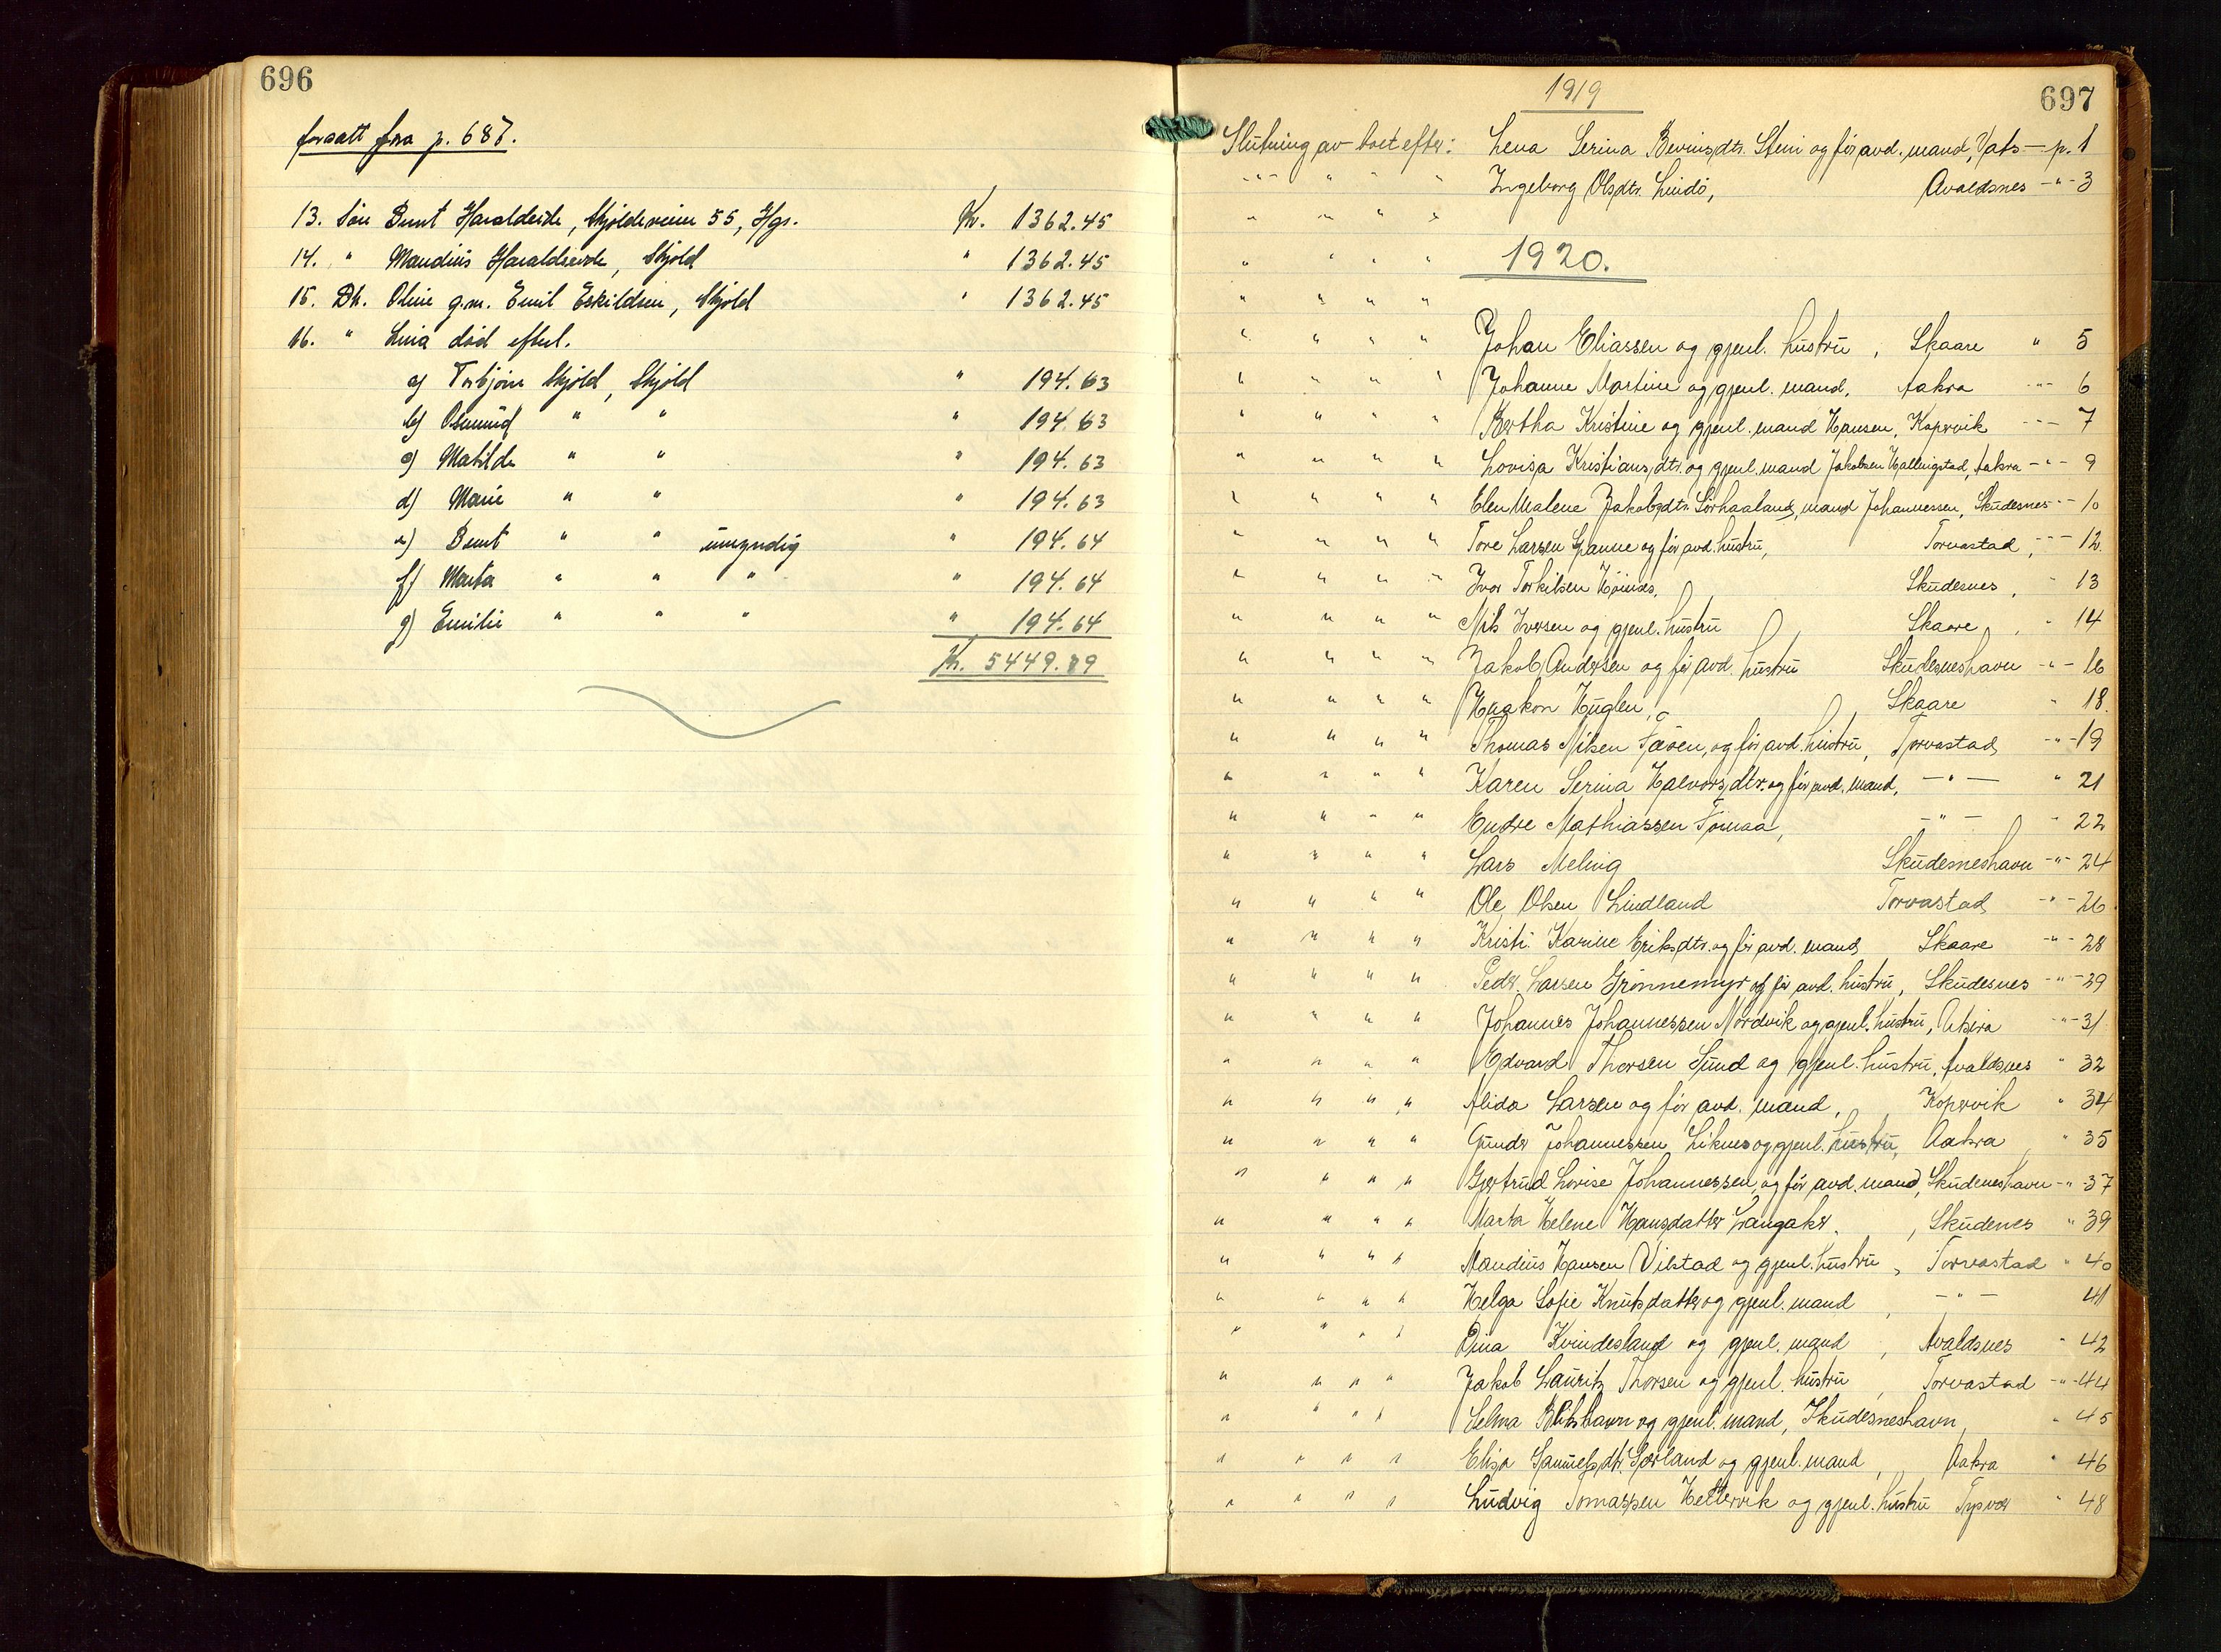 696
forsatt fra p. 687.
13. Søn Bernt Haraldseide, Skjoldeveien 55, Hgs. Kr. 1362.45
14. " Mandius Haraldseide, Skjold " 1362.45
15. Dtr. Oline g.m. Emil Eskildsen, Skjold " 1362.45
16. " Lina død efterl.
a) Torbjørn Skjold, Skjold " 194.63
b) Osmund " " " 194.63
c) Matilde " " " 194.63
d) Marie " " " 194.63
e) Bernt " " umyndig " 194.64
f) Marta " " " " 194.64
g) Emilie " " " " 194.64
Kr. 5449.79
697
1919
Slutning av boet efter: Lena Serina Steni og før avd. mand, Vats — p. 1
" " " " Ingeborg Olsdtr. Lindø, Avaldsnes - " - 3
" " " "
" " " " 1920.
" " " "
" " " " Johan Eliassen og gjenl. hustru, Skaare " 5
" " " " Johanne Martine og gjenl. mand, Aakra - " - 6
" " " " Bertha Kristine og gjenl. mand Hansen, Kopervik - - - 7
" " " " Lovisa Kristiansdtr. og gjenl. mand Jakobsen Hallingstad, Aakra - " - 9
" " " " Elen Malene Jakobsdtr. Sørhaaland, mand Johannessen, Skudesnes - " - 10
" " " " Tore Larsen Spanne og før avd. hustru, Torvastad, - " - 12.
" " " " Ivar Torkilsen Høines, Skudesnes, " 13
" " " " Nils Iversen og gjenl. hustru, Skaare, " 14
" " " " Jakob Andersen og før avd. hustru Skudesneshavn - " - 16
" " " " Haakon Huglen, Skaare " 18.
" " " " Thomas Nilsen Fæøen, og før avd. hustru, Torvastad, - " - 19
" " " " Karen Serina Halvorsdtr. og før avd. mand, — " — " 21
" " " " Endre Mathiassen Førnaa, - " - " 22
" " " " Lars Meling Skudesneshavn - " - 24
" " " " Ole Olsen Lindland Torvastad, - " - 26
" " " " Kristi Karine Eriksdtr. og før avd. mand, Skaare - " - 28
" " " " Peder Larsen Grønnemyr og før avd. hustru, Skudesnes - " - 29
" " " " Johannes Johannessen Nordvik og gjenl. hustru, Utsira - " - 31
" " " " Edvard Thorsen Sund og gjenl. hustru, Avaldsnes " 32
" " " " Alida Larsen og før avd. mand, Kopervik " 34
" " " " Gunder Johannessen Liknes og gjenl. hustru, Aakra " 35
" " " " Gjertrud Lovise Johannessen, og før avd. mand, Skudeneshavn - " - 37
" " " " Marta Helene Hansdatter Langaker, Skudenes " 39
" " " " Mandius Hansen Vikstad og gjenl. hustru, Torvastad " 40
" " " " Helga Sofie Knutsdatter og gjenl. mand, - " - 41
" " " " Dina Kvindesland og gjenl. mand, Avaldsnes " 42
" " " " Jakob Lauritz Thorsen og gjenl. hustru, Torvastad - " - 44
" " " " Selma og gjenl. mand, Skudesneshavn, " 45
" " " " Elisa Samuelsdtr. Sørland og gjenl. mand, Aakra " 46
" " " " Ludvig Tomassen Hettervik og gjenl. hustru Tysvær " 48